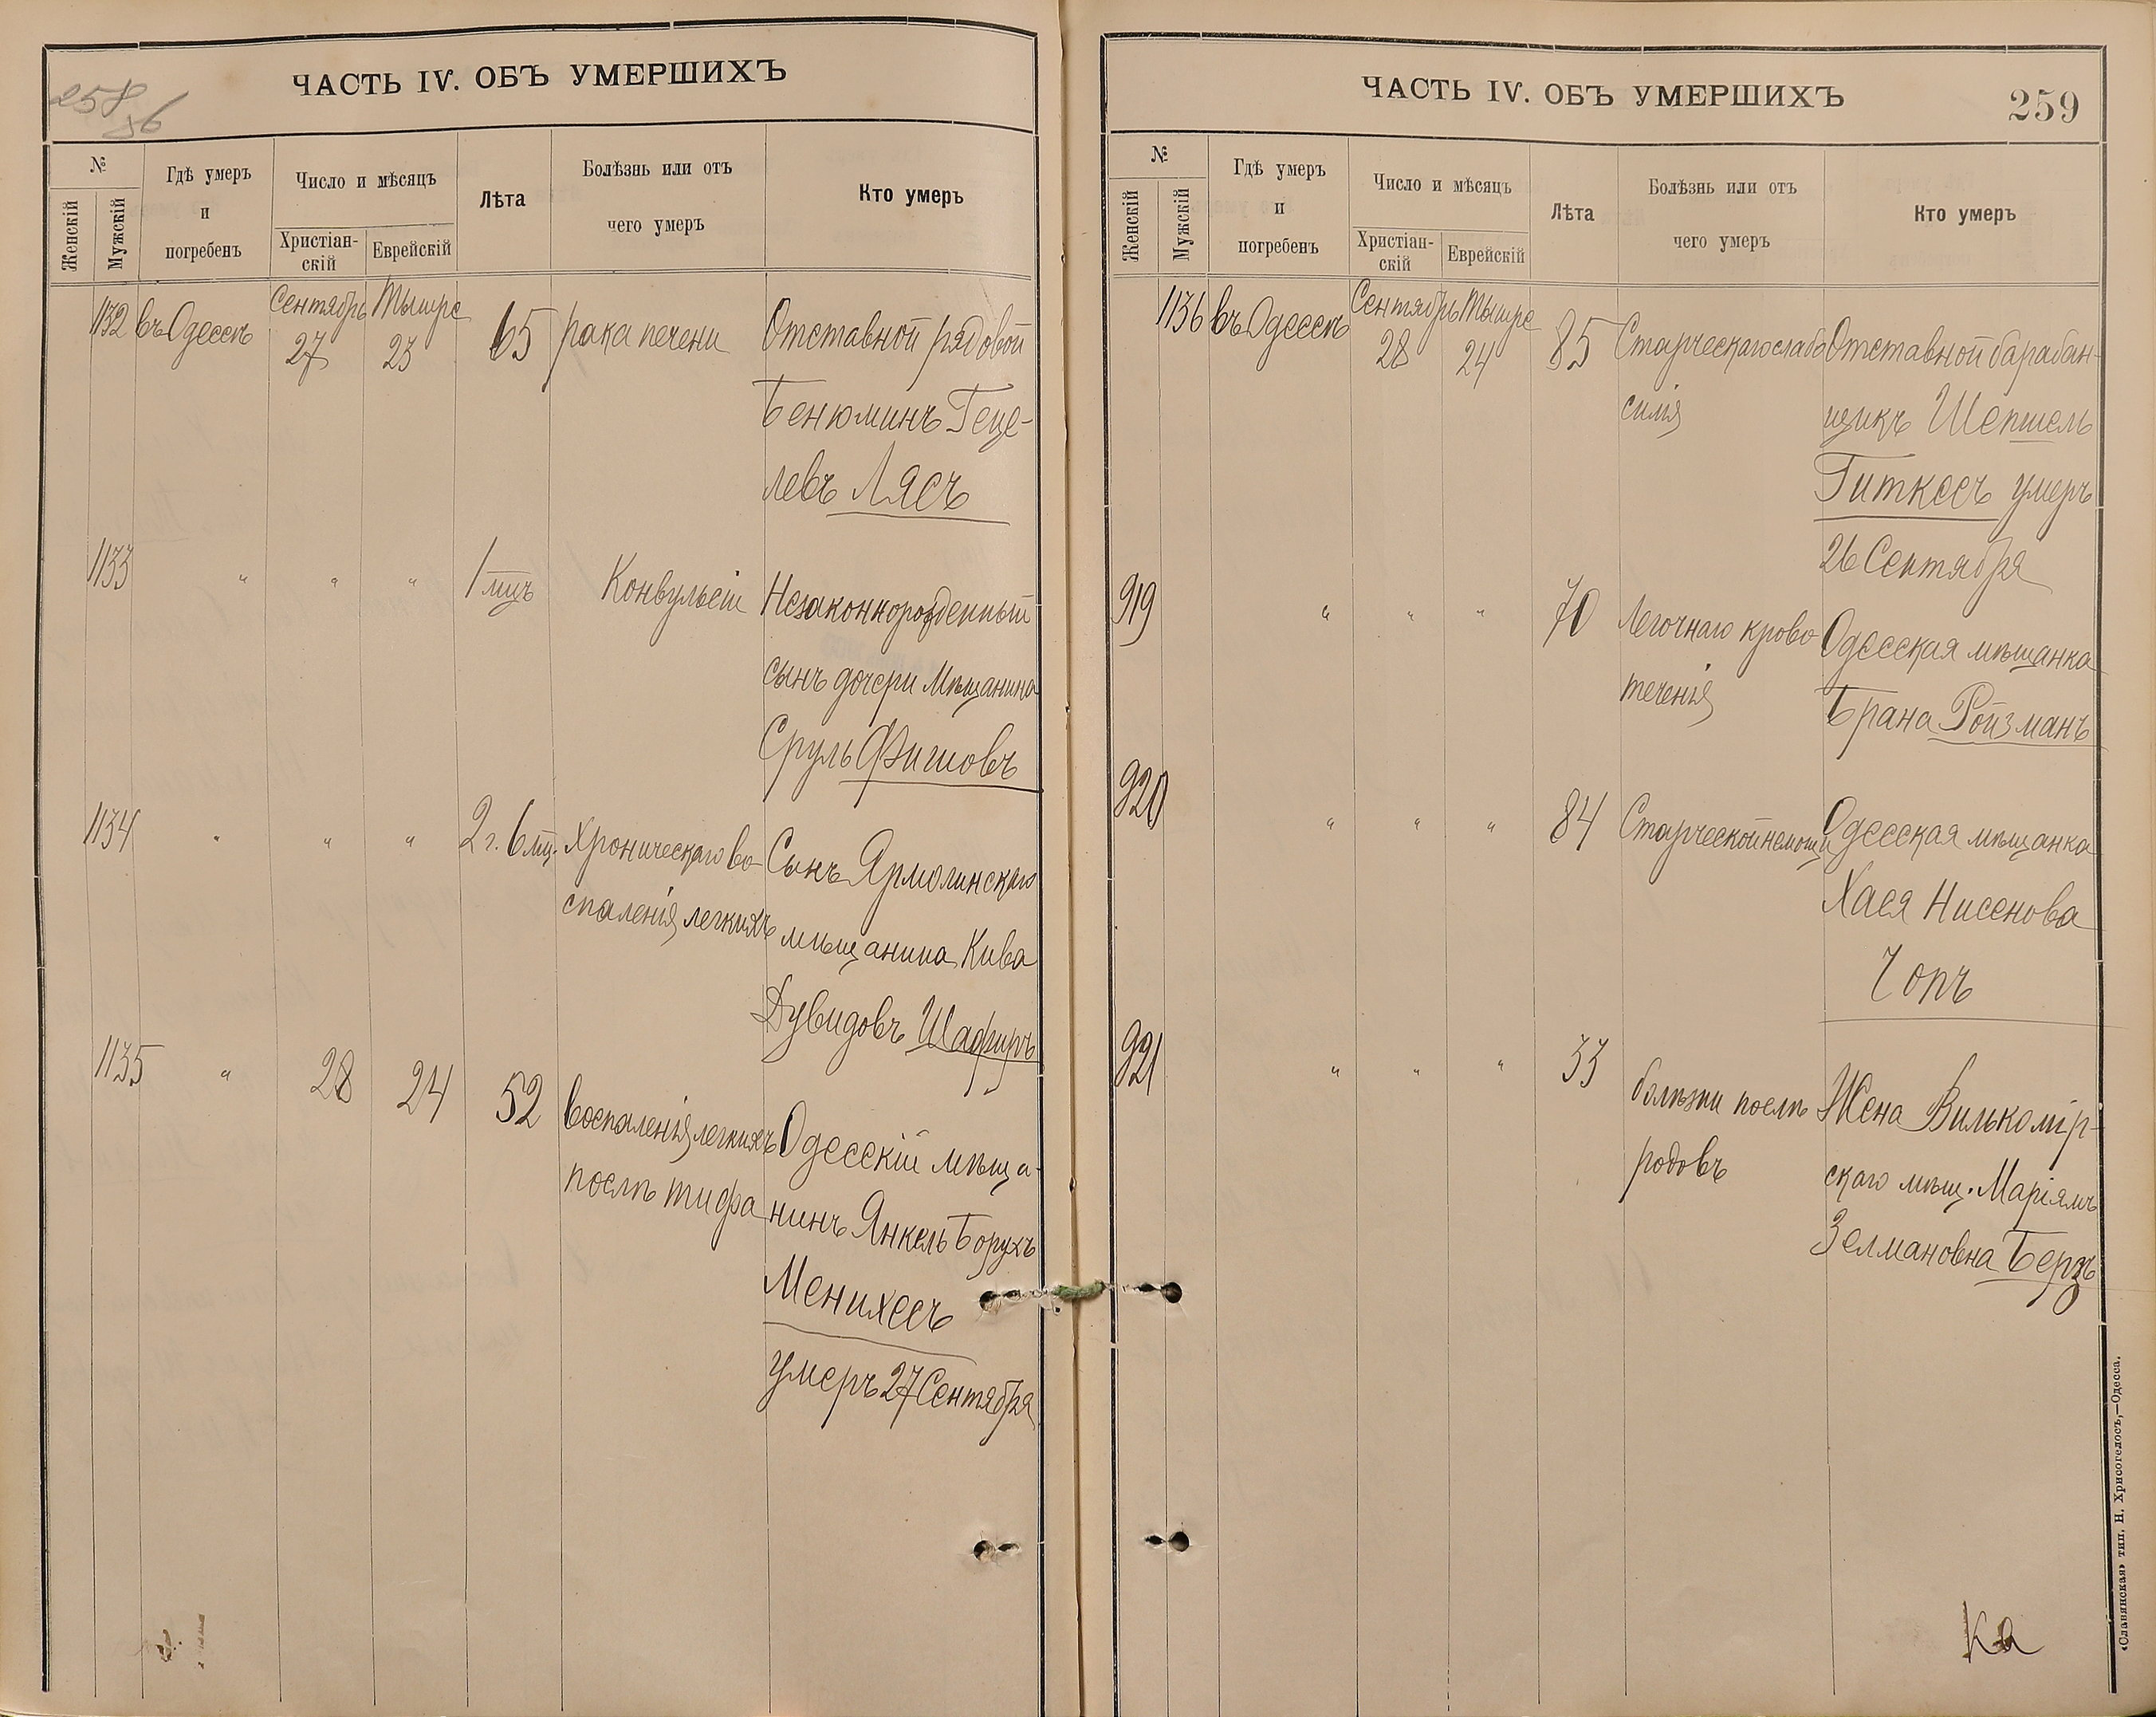 258
56
ЧАСТЬ IV. ОБЪ УМЕРШИХЪ
№
Женскій
Мужскій
Гдѣ умеръ
и
погребенъ
Число и мѣсяцъ
Христіан-
скій
Еврейскій
Лѣта
Болѣзнь или отъ
чего умеръ
Кто умеръ
1132 въ Одессѣ Сентябрь 27 Тышре 23 65 рака печени Отставной рядовой
Бенюминъ Геце-
левъ Лясъ
1133 " " " 1 мцъ Конвульсіи Незаконнорожденный
сынъ дочери мѣщанина
Сруль Фишовъ
1134 " " " 2 г. 6 мц. Хроническаго во- Сынъ Ярмолинскаго
спаленія легкихъ мѣщанина Кива
Дувидовъ Шафиръ
1135 " 28 24 52 воспаленія легкихъ Одесскій мѣща-
послѣ тифа нинъ Янкель Борухъ
Менихесъ
умеръ 27 Сентября
ЧАСТЬ IV. ОБЪ УМЕРШИХЪ
259
№
Женскій
Мужскій
Гдѣ умеръ
и
погребенъ
Число и мѣсяцъ
Христіан-
скій
Еврейскій
Лѣта
Болѣзнь или отъ
чего умеръ
Кто умеръ
1136 въ Одессѣ Сентябрь 28 Тышре 24 85 Старческаго слабо Отставной барабан-
силія щикъ Шепшель
Гиткесъ умеръ
26 Сентября
919 " " " 70 Легочнаго крово Одесская мѣщанка
теченія Брана Ройзманъ
920 " " " 84 Старческой немощи Одесская мѣщанка
Хася Нисенова
Чопъ
921 " " " 33 болѣзни послѣ Жена Вилькомір-
родовъ скаго мѣщ. Маріямъ
Зелмановна Берзъ
ка
«Славянская» тип. Н. Хрисогелосъ,—Одесса.